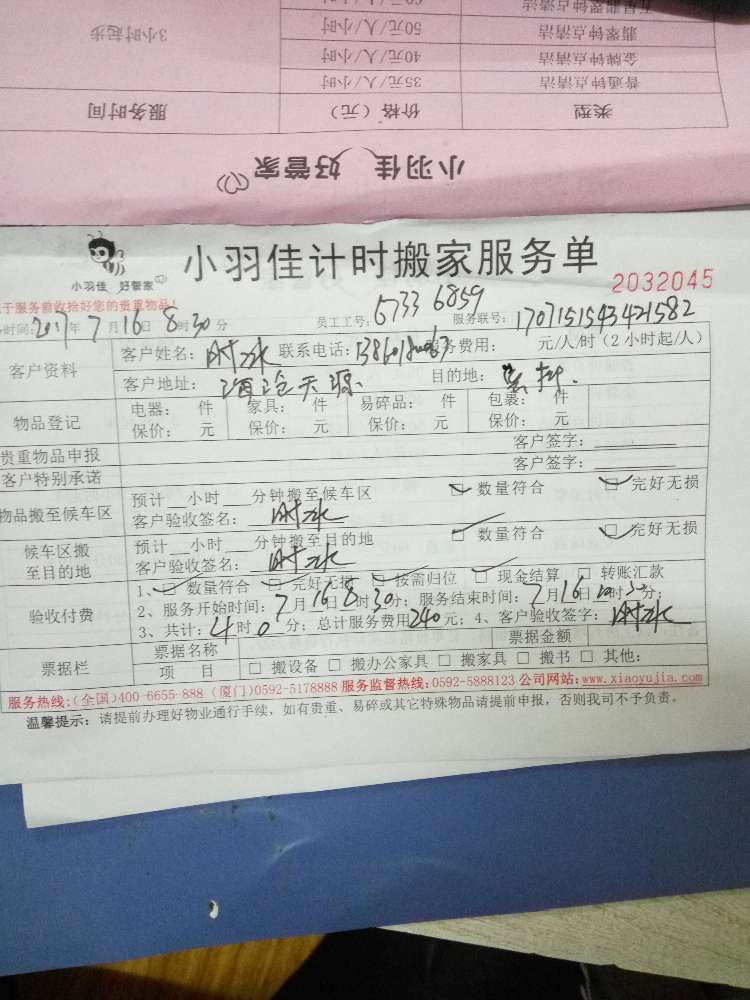 石材翡翠钟点清洁 60元/人/小时
翡翠钟点清洁 50元/人/小时 3小时起步
金牌钟点清洁 40元/人/小时
普通钟点清洁 35元/人/小时
类型 价格（元） 服务时间
小羽佳 好管家
小羽佳 好管家
小羽佳计时搬家服务单
2032045
于服务前收拾好您的贵重物品！
时间:2017年7月16日8时30分 员工工号: 6733 6859 服务联号: 1707151543421582
客户资料
客户姓名: 联系电话: 服务费用: 元/人/时（2小时起/人）
客户地址: 海沧天源 目的地:
物品登记
电器: 件 家具: 件 易碎品: 件 包裹: 件
保价: 元 保价: 元 保价: 元 保价: 元
贵重物品申报 客户签字:
客户特别承诺 客户签字:
物品搬至候车区
预计 小时 分钟搬至候车区 □ 数量符合 □ 完好无损
客户验收签名:
候车区搬至目的地
预计 小时 分钟搬至目的地 □ 数量符合 □ 完好无损
客户验收签名:
验收付费
1、□ 数量符合 □ 完好无损 □ 按需归位 □ 现金结算 □ 转账汇款
2、服务开始时间: 7月16日8时30分; 服务结束时间: 7月16日 时30分;
3、共计: 4时0分; 总计服务费用240元; 4、客户验收签字:
票据栏
票据名称 票据金额
项 目 □ 搬设备 □ 搬办公家具 □ 搬家具 □ 搬书 □ 其他:
服务热线:(全国)400-6655-888 (厦门)0592-5178888 服务监督热线:0592-5888123 公司网站:www.xiaoyujia.com
温馨提示: 请提前办理好物业通行手续，如有贵重、易碎或其它特殊物品请提前申报，否则我司不予负责。